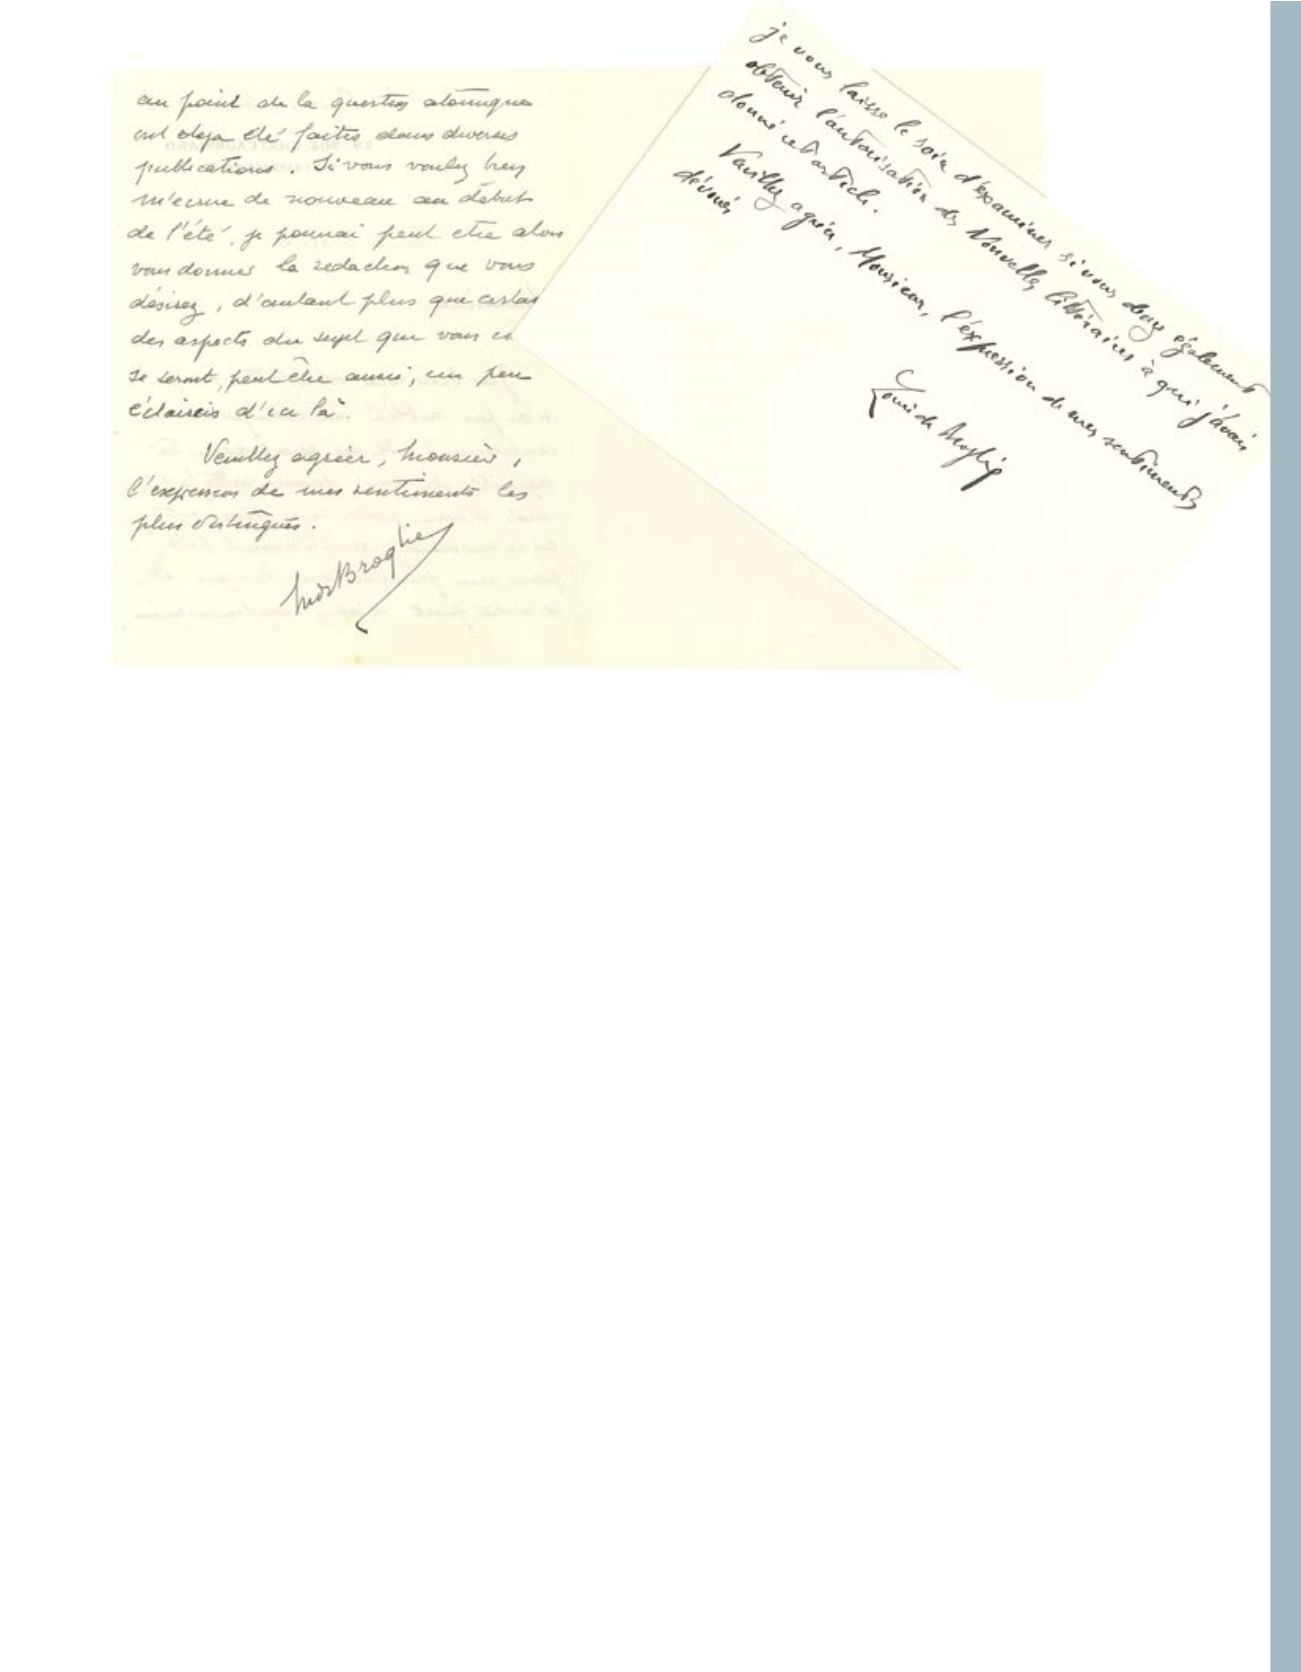 au point de la question atomique
ont deja été faites dans diverses
publications. Si vous voulez bien
m'écrire de nouveau au début
de l'été, je pourrai peut etre alors
vous donner la rédaction que vous
désirez, d'autant plus que certai
des aspects du sujet que vous
se seront, peut être aussi, un peu
éclaircis d'ici là.
Veuillez agréer, Monsieur,
l'expression de mes sentiments les
plus distingués.
Broglie
je vous laisse le soin d'examiner si vous devez également
obtenir l'autorisation des Nouvelles littéraires à qui j'avais
donné cet article.
Veuillez agréer, Monsieur, l'expression de mes sentiments
dévoués
Louis de Broglie